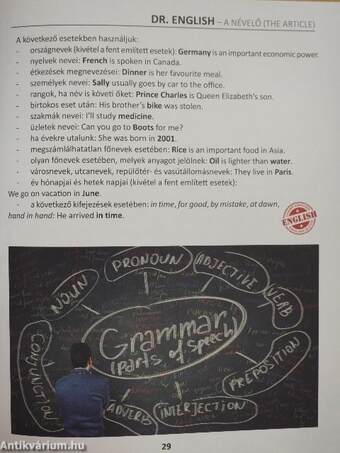 DR. ENGLISH – A NÉVELŐ (THE ARTICLE)
A következő esetekben használjuk:
- országnevek (kivétel a fent említett esetek): Germany is an important economic power.
- nyelvek nevei: French is spoken in Canada.
- étkezések megnevezései: Dinner is her favourite meal.
- személyek nevei: Sally usually goes by car to the office.
- rangok, ha név is követi őket: Prince Charles is Queen Elizabeth's son.
- birtokos eset után: His brother's bike was stolen.
- szakmák nevei: I'll study medicine.
- üzletek nevei: Can you go to Boots for me?
- ha évekre utalunk: She was born in 2001.
- megszámlálhatatlan főnevek esetében: Rice is an important food in Asia.
- olyan főnevek esetében, melyek anyagot jelölnek: Oil is lighter than water.
- városnevek, utcanevek, repülőtér- és vasútállomásnevek: They live in Paris.
- év hónapjai és hetek napjai (kivétel a fent említett esetek):
We go on vacation in June.
- a következő kifejezések esetében: in time, for good, by mistake, at dawn,
hand in hand: He arrived in time.
ENGLISH
PRONOUN
ADJECTIVE
NOUN
VERB
Grammar
(parts of speech)
CONJUNCTION
PREPOSITION
ADVERB
INTERJECTION
29
Antikvárium.hu